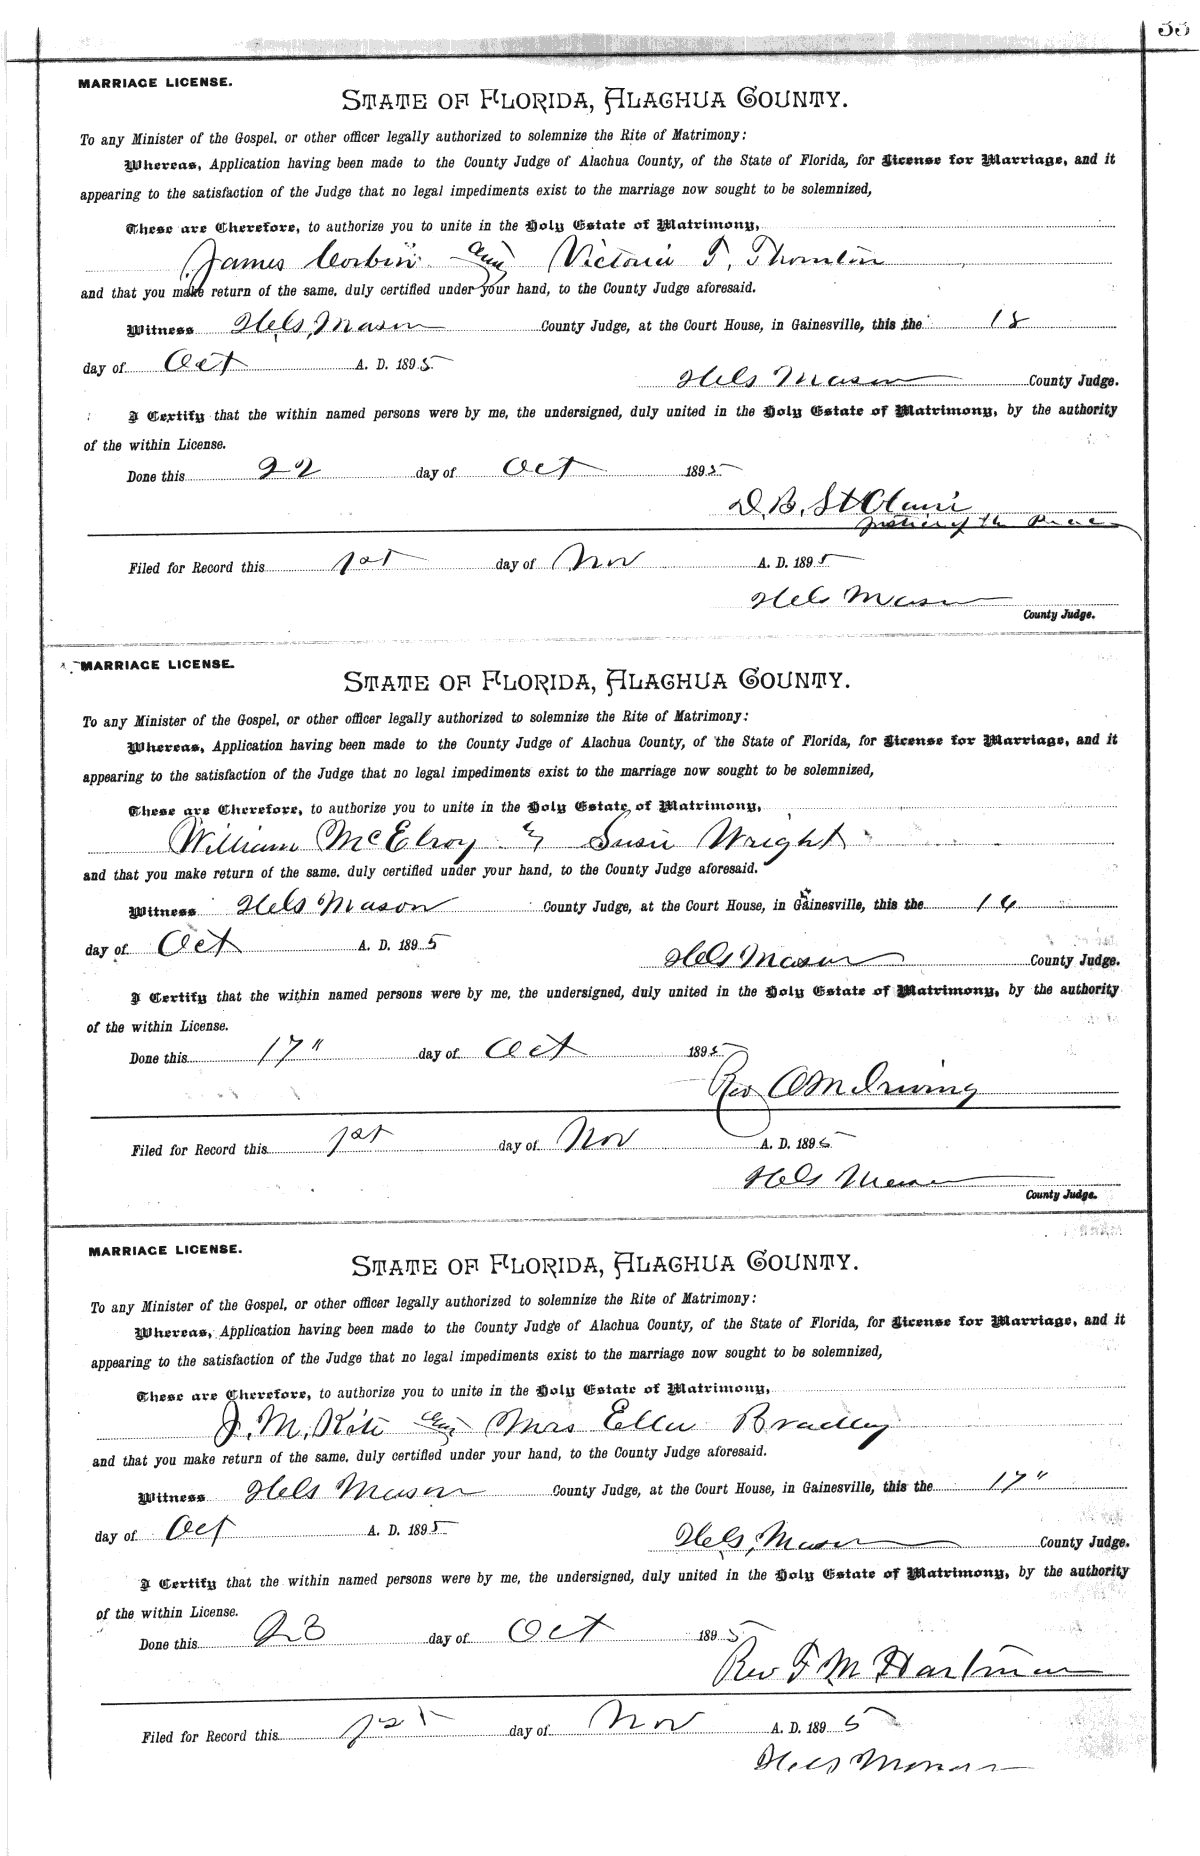 33
MARRIAGE LICENSE.
STATE OF FLORIDA, ALACHUA COUNTY.
To any Minister of the Gospel, or other officer legally authorized to solemnize the Rite of Matrimony:
Whereas, Application having been made to the County Judge of Alachua County, of the State of Florida, for License for Marriage, and it
appearing to the satisfaction of the Judge that no legal impediments exist to the marriage now sought to be solemnized,
These are Therefore, to authorize you to unite in the Holy Estate of Matrimony,
James Corbin and Victoria T. Thornton
and that you make return of the same, duly certified under your hand, to the County Judge aforesaid.
Witness Hels Mason County Judge, at the Court House, in Gainesville, this the 18
day of Oct A. D. 1895
Hels Mason County Judge.
I Certify that the within named persons were by me, the undersigned, duly united in the Holy Estate of Matrimony, by the authority
of the within License.
Done this 22 day of Oct 1895
D. B. St Clair
Justice of the Peace
Filed for Record this 1st day of Nov A. D. 1895
Hels Mason
County Judge.
MARRIAGE LICENSE.
STATE OF FLORIDA, ALACHUA COUNTY.
To any Minister of the Gospel, or other officer legally authorized to solemnize the Rite of Matrimony:
Whereas, Application having been made to the County Judge of Alachua County, of the State of Florida, for License for Marriage, and it
appearing to the satisfaction of the Judge that no legal impediments exist to the marriage now sought to be solemnized,
These are Therefore, to authorize you to unite in the Holy Estate of Matrimony,
William McElroy & Susie Wright
and that you make return of the same, duly certified under your hand, to the County Judge aforesaid.
Witness Hels Mason County Judge, at the Court House, in Gainesville, this the 16
day of Oct A. D. 1895
Hels Mason County Judge.
I Certify that the within named persons were by me, the undersigned, duly united in the Holy Estate of Matrimony, by the authority
of the within License.
Done this 17" day of Oct 1895
Rev O M Irving
Filed for Record this 1st day of Nov A. D. 1895
Hels Mason
County Judge.
MARRIAGE LICENSE.
STATE OF FLORIDA, ALACHUA COUNTY.
To any Minister of the Gospel, or other officer legally authorized to solemnize the Rite of Matrimony:
Whereas, Application having been made to the County Judge of Alachua County, of the State of Florida, for License for Marriage, and it
appearing to the satisfaction of the Judge that no legal impediments exist to the marriage now sought to be solemnized,
These are Therefore, to authorize you to unite in the Holy Estate of Matrimony,
J. M. Kite and Mrs Ella Bradley
and that you make return of the same, duly certified under your hand, to the County Judge aforesaid.
Witness Hels Mason County Judge, at the Court House, in Gainesville, this the 17"
day of Oct A. D. 1895
Hels, Mason County Judge.
I Certify that the within named persons were by me, the undersigned, duly united in the Holy Estate of Matrimony, by the authority
of the within License.
Done this 23 day of Oct 1895
Rev F M Hartman
Filed for Record this 1st day of Nov A. D. 1895
Hels Mason